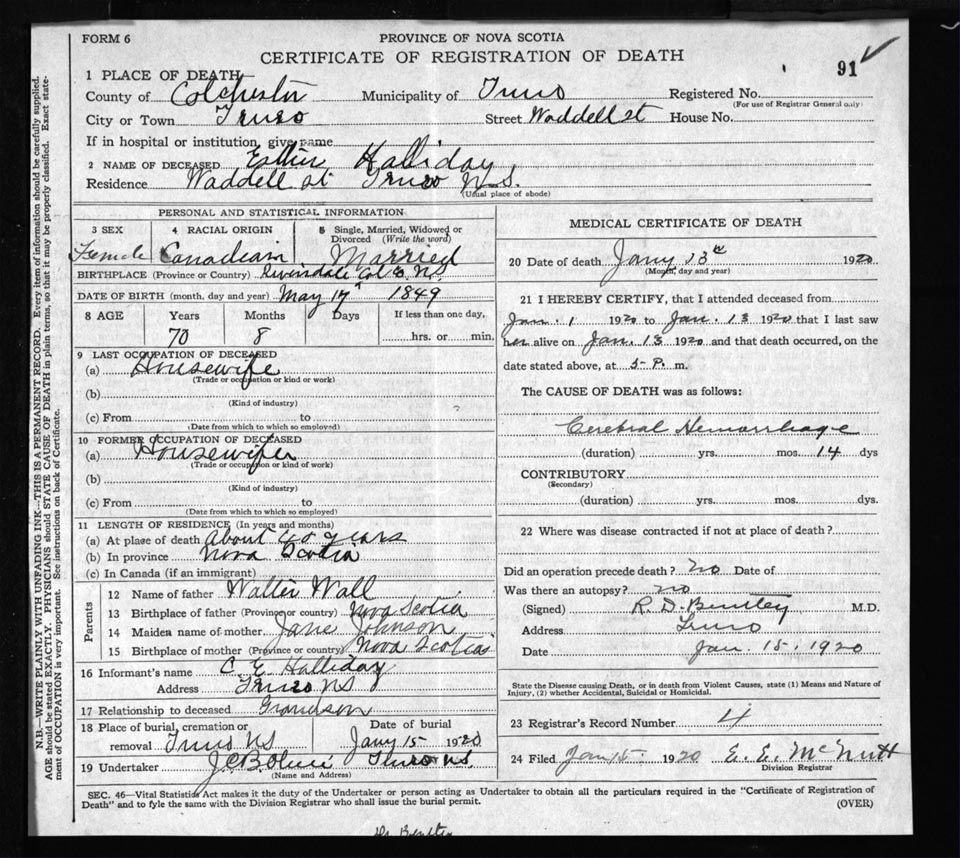 FORM 6
PROVINCE OF NOVA SCOTIA
CERTIFICATE OF REGISTRATION OF DEATH
91
1 PLACE OF DEATH
County of Colchester Municipality of Truro Registered No.
(For use of Registrar General only)
City or Town Truro Street Waddell st House No.
If in hospital or institution, give name
2 NAME OF DECEASED Esther Halliday
Residence Waddell st Truro N.S.
(Usual place of abode)
PERSONAL AND STATISTICAL INFORMATION
3 SEX 4 RACIAL ORIGIN 5 Single, Married, Widowed or Divorced (Write the word)
Female Canadian Married
BIRTHPLACE (Province or Country) Riversdale Col Co N.S.
DATE OF BIRTH (month, day and year) May 17 1849
8 AGE Years Months Days If less than one day,
70 8 hrs. or min.
9 LAST OCCUPATION OF DECEASED
(a) Housewife
(Trade or occupation or kind or work)
(b)
(Kind of industry)
(c) From to
(Date from which to which so employed)
10 FORMER OCCUPATION OF DECEASED
(a) Housewife
(Trade or occupation or kind of work)
(b)
(Kind of industry)
(c) From to
(Date from which to which so employed)
11 LENGTH OF RESIDENCE (In years and months)
(a) At place of death about years
(b) In province Nova Scotia
(c) In Canada (if an immigrant)
Parents
12 Name of father Walter Wall
13 Birthplace of father (Province or country) Nova Scotia
14 Maiden name of mother Jane Johnson
15 Birthplace of mother (Province or country) Nova Scotia
16 Informant's name C. E. Halliday
Address Truro NS
17 Relationship to deceased Grandson
18 Place of burial, cremation or removal Truro NS Date of burial Jany 15 1920
19 Undertaker Truro N.S.
(Name and Address)
MEDICAL CERTIFICATE OF DEATH
20 Date of death Jany 13th 1920
(Month, day and year)
21 I HEREBY CERTIFY, that I attended deceased from
Jan. 1 1920 to Jan. 13 1920 that I last saw
her alive on Jan. 13 1920 and that death occurred, on the
date stated above, at 5 P. m.
The CAUSE OF DEATH was as follows:
Cerebral Hemorrhage
(duration) yrs. mos. 14 dys
CONTRIBUTORY
(Secondary)
(duration) yrs. mos. dys.
22 Where was disease contracted if not at place of death?
Did an operation precede death? no Date of
Was there an autopsy? no
(Signed) R. D. Bentley M.D.
Address Truro
Date Jan. 15. 1920
State the Disease causing Death, or in death from Violent Causes, state (1) Means and Nature of
Injury, (2) whether Accidental, Suicidal or Homicidal.
23 Registrar's Record Number 4
24 Filed Jan 15 1920 E. E. McNutt
Division Registrar
SEC. 46—Vital Statistics Act makes it the duty of the Undertaker or person acting as Undertaker to obtain all the particulars required in the "Certificate of Registration of
Death" and to fyle the same with the Division Registrar who shall issue the burial permit.
(OVER)
N.B.—WRITE PLAINLY WITH UNFADING INK—THIS IS A PERMANENT RECORD. Every item of information should be carefully supplied.
AGE should be stated EXACTLY. PHYSICIANS should STATE CAUSE OF DEATH in plain terms, so that it may be properly classified. Exact state-
ment of OCCUPATION is very important. See instructions on back of Certificate.